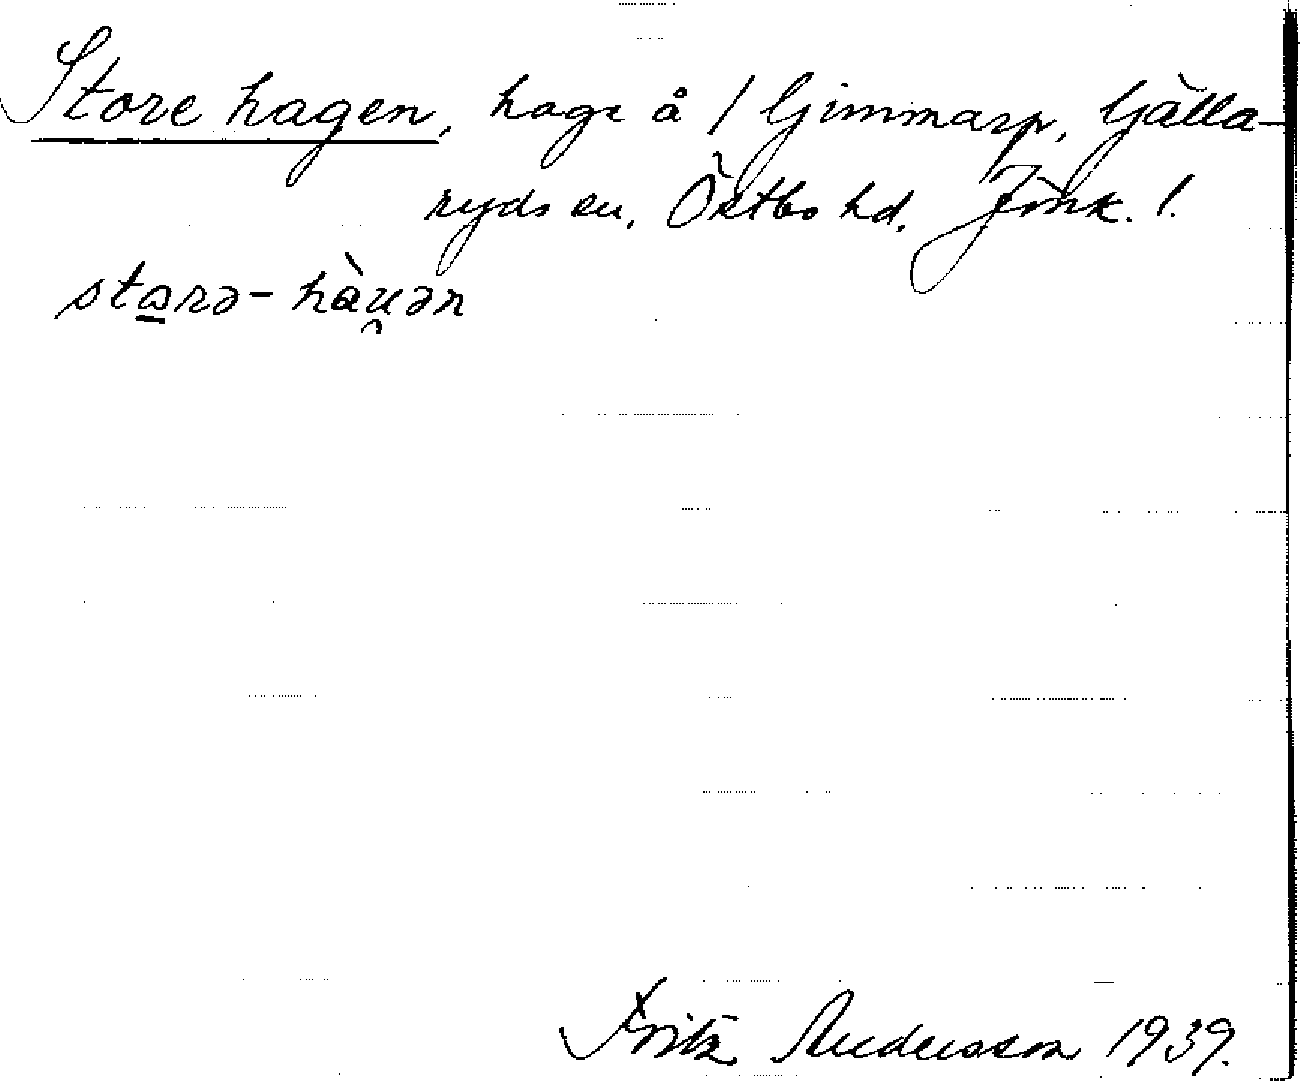 Store hagen, hage å / Gimmarp, Gälla-
ryds sn, Östbo hd, Jönk. l.
sta̱rə-hàu̯ən
Fritz Andersson 1939.